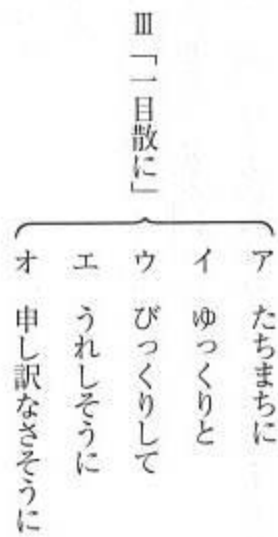 Ⅲ「一目散に」
ア　たちまちに
イ　ゆっくりと
ウ　びっくりして
エ　うれしそうに
オ　申し訳なさそうに